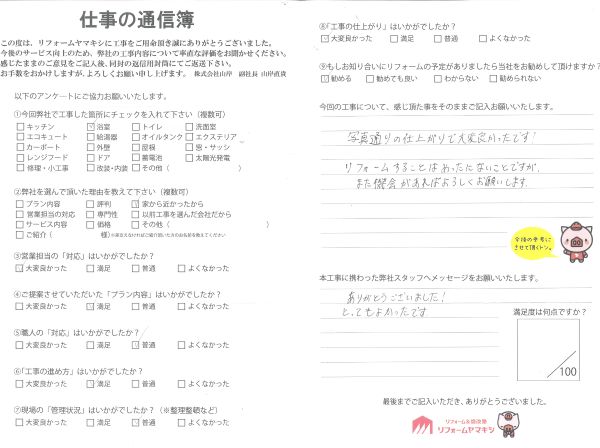 仕事の通信簿
この度は、リフォームヤマキシに工事をご用命頂き誠にありがとうございました。
今後のサービス向上のため、弊社の工事内容について率直な評価をお聞かせください。
感じたままのご意見をご記入後、同封の返信用封筒にてご返送下さい。
お手数をおかけしますが、よろしくお願い申し上げます。 株式会社山岸 副社長 山岸直哉
以下のアンケートにご協力お願いいたします。
①今回弊社で工事した箇所にチェックを入れて下さい（複数可）
□キッチン ☑浴室 □トイレ □洗面室
□エコキュート □給湯器 □オイルタンク □エクステリア
□カーポート □外壁 □屋根 □窓・サッシ
□レンジフード □ドア □蓄電池 □太陽光発電
□修理・小工事 □改装・内装 □その他（ ）
②弊社を選んで頂いた理由を教えて下さい（複数可）
□プラン内容 □評判 ☑家から近かったから
□営業担当の対応 □専門性 □以前工事を選んだ会社だから
□サービス内容 □価格 □その他（ ）
□ご紹介（ 様）※差支えなければご紹介頂いた方のお名前を教えてください
③営業担当の「対応」はいかがでしたか？
☑大変良かった □満足 □普通 □よくなかった
④ご提案させていただいた「プラン内容」はいかがでしたか？
□大変良かった ☑満足 □普通 □よくなかった
⑤職人の「対応」はいかがでしたか？
□大変良かった □満足 ☑普通 □よくなかった
⑥「工事の進め方」はいかがでしたか？
□大変良かった ☑満足 □普通 □よくなかった
⑦現場の「管理状況」はいかがでしたか？（※整理整頓など）
□大変良かった □満足 ☑普通 □よくなかった
⑧「工事の仕上がり」はいかがでしたか？
☑大変良かった □満足 □普通 □よくなかった
⑨もしお知り合いにリフォームの予定がありましたら当社をお勧めして頂けますか？
☑勧める □勧めても良い □わからない □勧められない
今回の工事について、感じ頂た事をそのままご記入お願いいたします。
写真通りの仕上がりで大変良かったです！
リフォームすることはめったにないことですが、
また機会があればよろしくお願いします。
今後の参考にさせて頂くトン。
本工事に携わった弊社スタッフへメッセージをお願いいたします。
ありがとうございました！
とってもよかったです
満足度は何点ですか？
/100
最後までご記入いただき、ありがとうございました。
リフォーム&増改築
リフォームヤマキシ